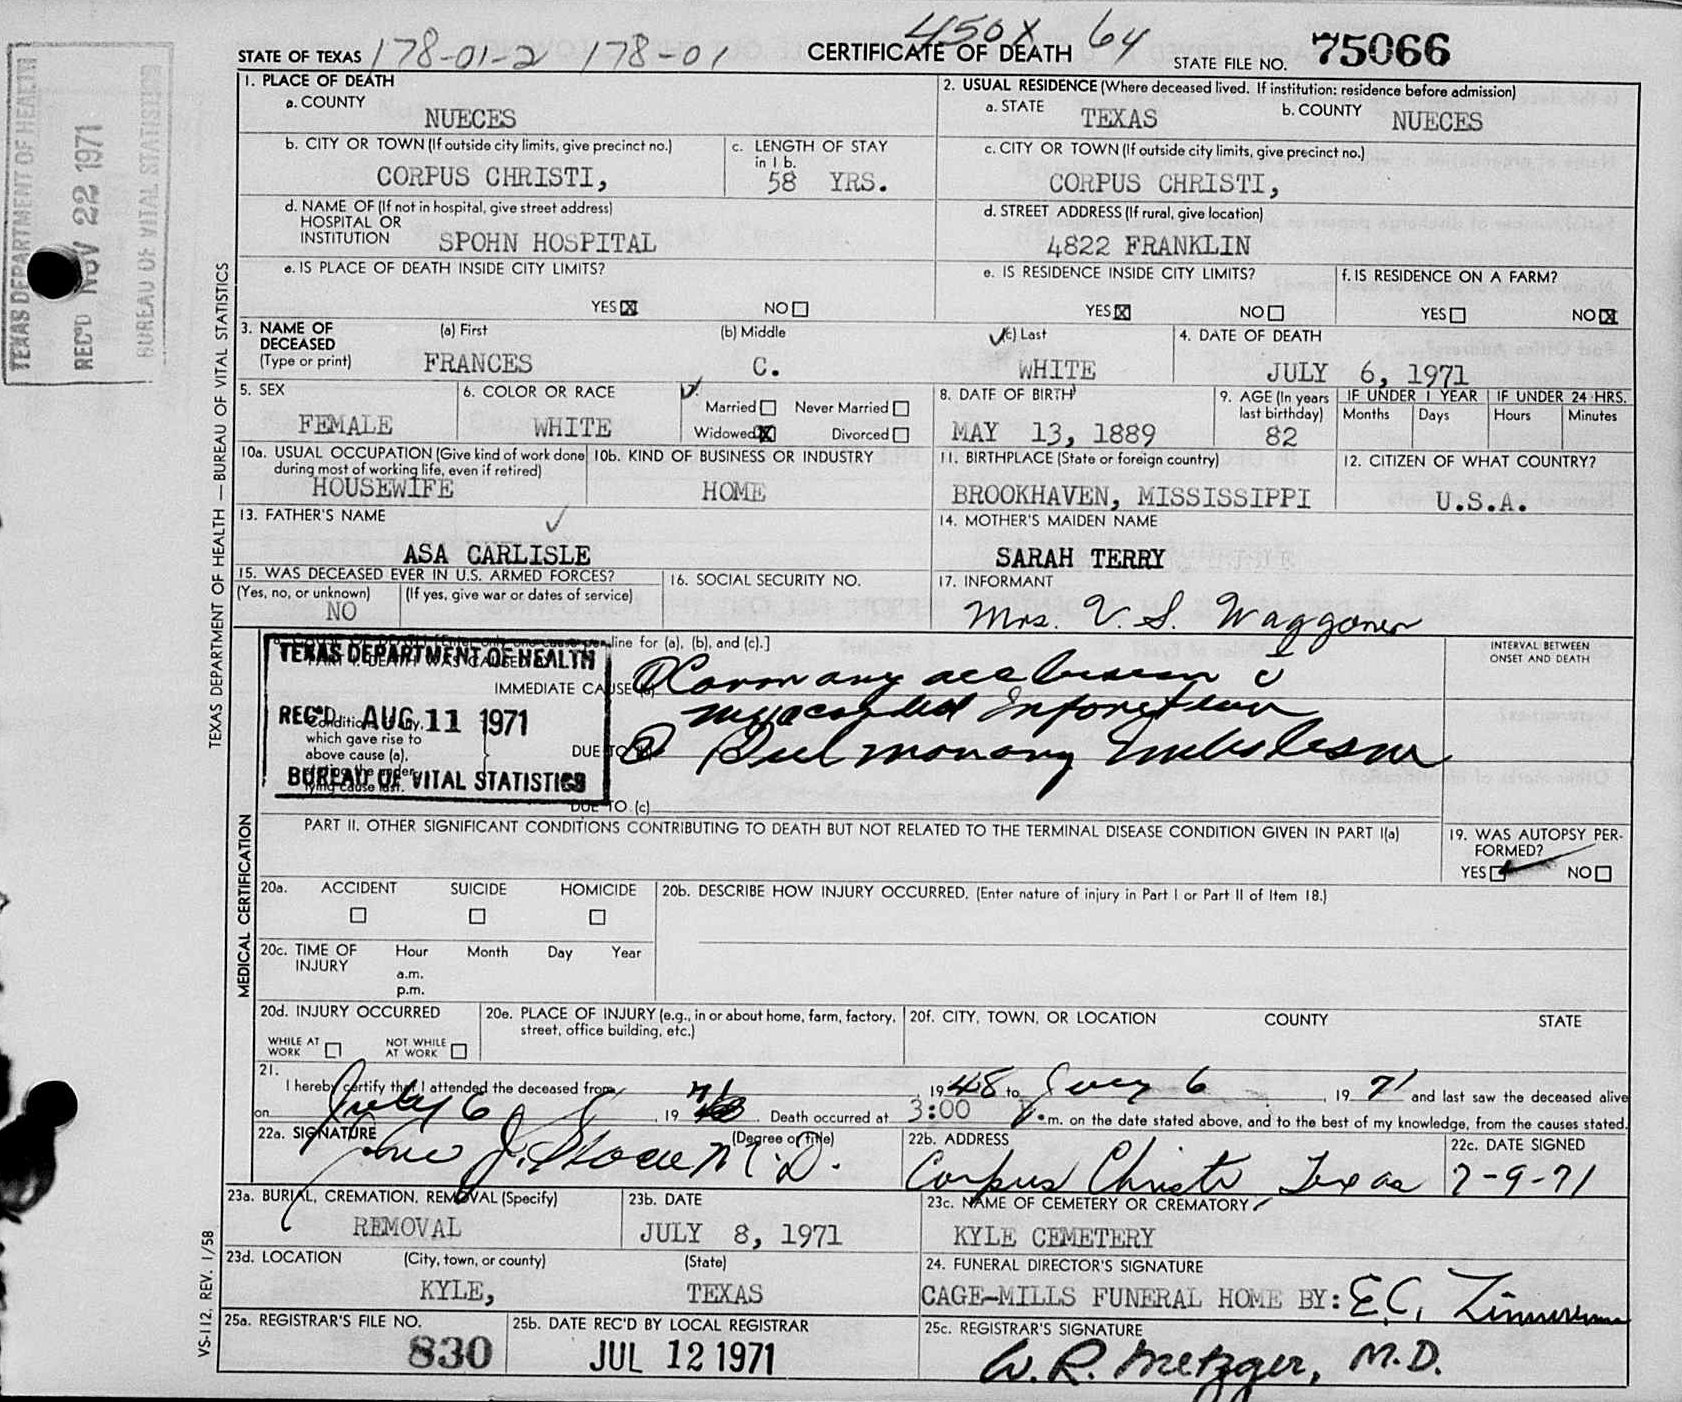 450X 64
STATE OF TEXAS 178-01-2 178-01 CERTIFICATE OF DEATH STATE FILE NO. 75066
TEXAS DEPARTMENT OF HEALTH
REC'D NOV 22 1971
BUREAU OF VITAL STATISTICS
TEXAS DEPARTMENT OF HEALTH — BUREAU OF VITAL STATISTICS
1. PLACE OF DEATH
a. COUNTY
NUECES
2. USUAL RESIDENCE (Where deceased lived. If institution: residence before admission)
a. STATE TEXAS b. COUNTY NUECES
b. CITY OR TOWN (If outside city limits, give precinct no.)
CORPUS CHRISTI,
c. LENGTH OF STAY
in 1 b.
58 YRS.
c. CITY OR TOWN (If outside city limits, give precinct no.)
CORPUS CHRISTI,
d. NAME OF (If not in hospital, give street address)
HOSPITAL OR
INSTITUTION SPOHN HOSPITAL
d. STREET ADDRESS (If rural, give location)
4822 FRANKLIN
e. IS PLACE OF DEATH INSIDE CITY LIMITS?
YES NO
e. IS RESIDENCE INSIDE CITY LIMITS?
YES NO
f. IS RESIDENCE ON A FARM?
YES NO
3. NAME OF
DECEASED
(Type or print)
(a) First
FRANCES
(b) Middle
C.
(c) Last
WHITE
4. DATE OF DEATH
JULY 6, 1971
5. SEX
FEMALE
6. COLOR OR RACE
WHITE
7.
Married Never Married
Widowed Divorced
8. DATE OF BIRTH
MAY 13, 1889
9. AGE (In years
last birthday)
82
IF UNDER 1 YEAR
Months Days
IF UNDER 24 HRS.
Hours Minutes
10a. USUAL OCCUPATION (Give kind of work done
during most of working life, even if retired)
HOUSEWIFE
10b. KIND OF BUSINESS OR INDUSTRY
HOME
11. BIRTHPLACE (State or foreign country)
BROOKHAVEN, MISSISSIPPI
12. CITIZEN OF WHAT COUNTRY?
U.S.A.
13. FATHER'S NAME
ASA CARLISLE
14. MOTHER'S MAIDEN NAME
SARAH TERRY
15. WAS DECEASED EVER IN U.S. ARMED FORCES?
(Yes, no, or unknown) (If yes, give war or dates of service)
NO
16. SOCIAL SECURITY NO.
17. INFORMANT
Mrs. V. S. Waggoner
MEDICAL CERTIFICATION
line for (a), (b), and (c).]
INTERVAL BETWEEN
ONSET AND DEATH
TEXAS DEPARTMENT OF HEALTH
REC'D. AUG 11 1971
BUREAU OF VITAL STATISTICS
IMMEDIATE CAUSE (a) ① Coronary occlusion c̄
myocardial Infarction
which gave rise to
above cause (a),
lying cause last.
DUE TO (b) ② Pulmonary Embolism
DUE TO (c)
PART II. OTHER SIGNIFICANT CONDITIONS CONTRIBUTING TO DEATH BUT NOT RELATED TO THE TERMINAL DISEASE CONDITION GIVEN IN PART I(a)
19. WAS AUTOPSY PER-
FORMED?
YES NO
20a. ACCIDENT SUICIDE HOMICIDE
20b. DESCRIBE HOW INJURY OCCURRED. (Enter nature of injury in Part I or Part II of Item 18.)
20c. TIME OF
INJURY
Hour Month Day Year
a.m.
p.m.
20d. INJURY OCCURRED
WHILE AT
WORK
NOT WHILE
AT WORK
20e. PLACE OF INJURY (e.g., in or about home, farm, factory,
street, office building, etc.)
20f. CITY, TOWN, OR LOCATION COUNTY STATE
21.
I hereby certify that I attended the deceased from , 1948 to July 6 , 1971 and last saw the deceased alive
on July 6 , 19 71 . Death occurred at 3:00 P.m. on the date stated above, and to the best of my knowledge, from the causes stated.
22a. SIGNATURE (Degree or title)
M.D.
22b. ADDRESS
Corpus Christi Texas
22c. DATE SIGNED
7-9-71
23a. BURIAL, CREMATION, REMOVAL (Specify)
REMOVAL
23b. DATE
JULY 8, 1971
23c. NAME OF CEMETERY OR CREMATORY
KYLE CEMETERY
23d. LOCATION (City, town, or county) (State)
KYLE, TEXAS
24. FUNERAL DIRECTOR'S SIGNATURE
CAGE-MILLS FUNERAL HOME BY: E.C. Zimmerman
25a. REGISTRAR'S FILE NO.
830
25b. DATE REC'D BY LOCAL REGISTRAR
JUL 12 1971
25c. REGISTRAR'S SIGNATURE
W. R. Metzger, M.D.
VS-112, REV. 1/58